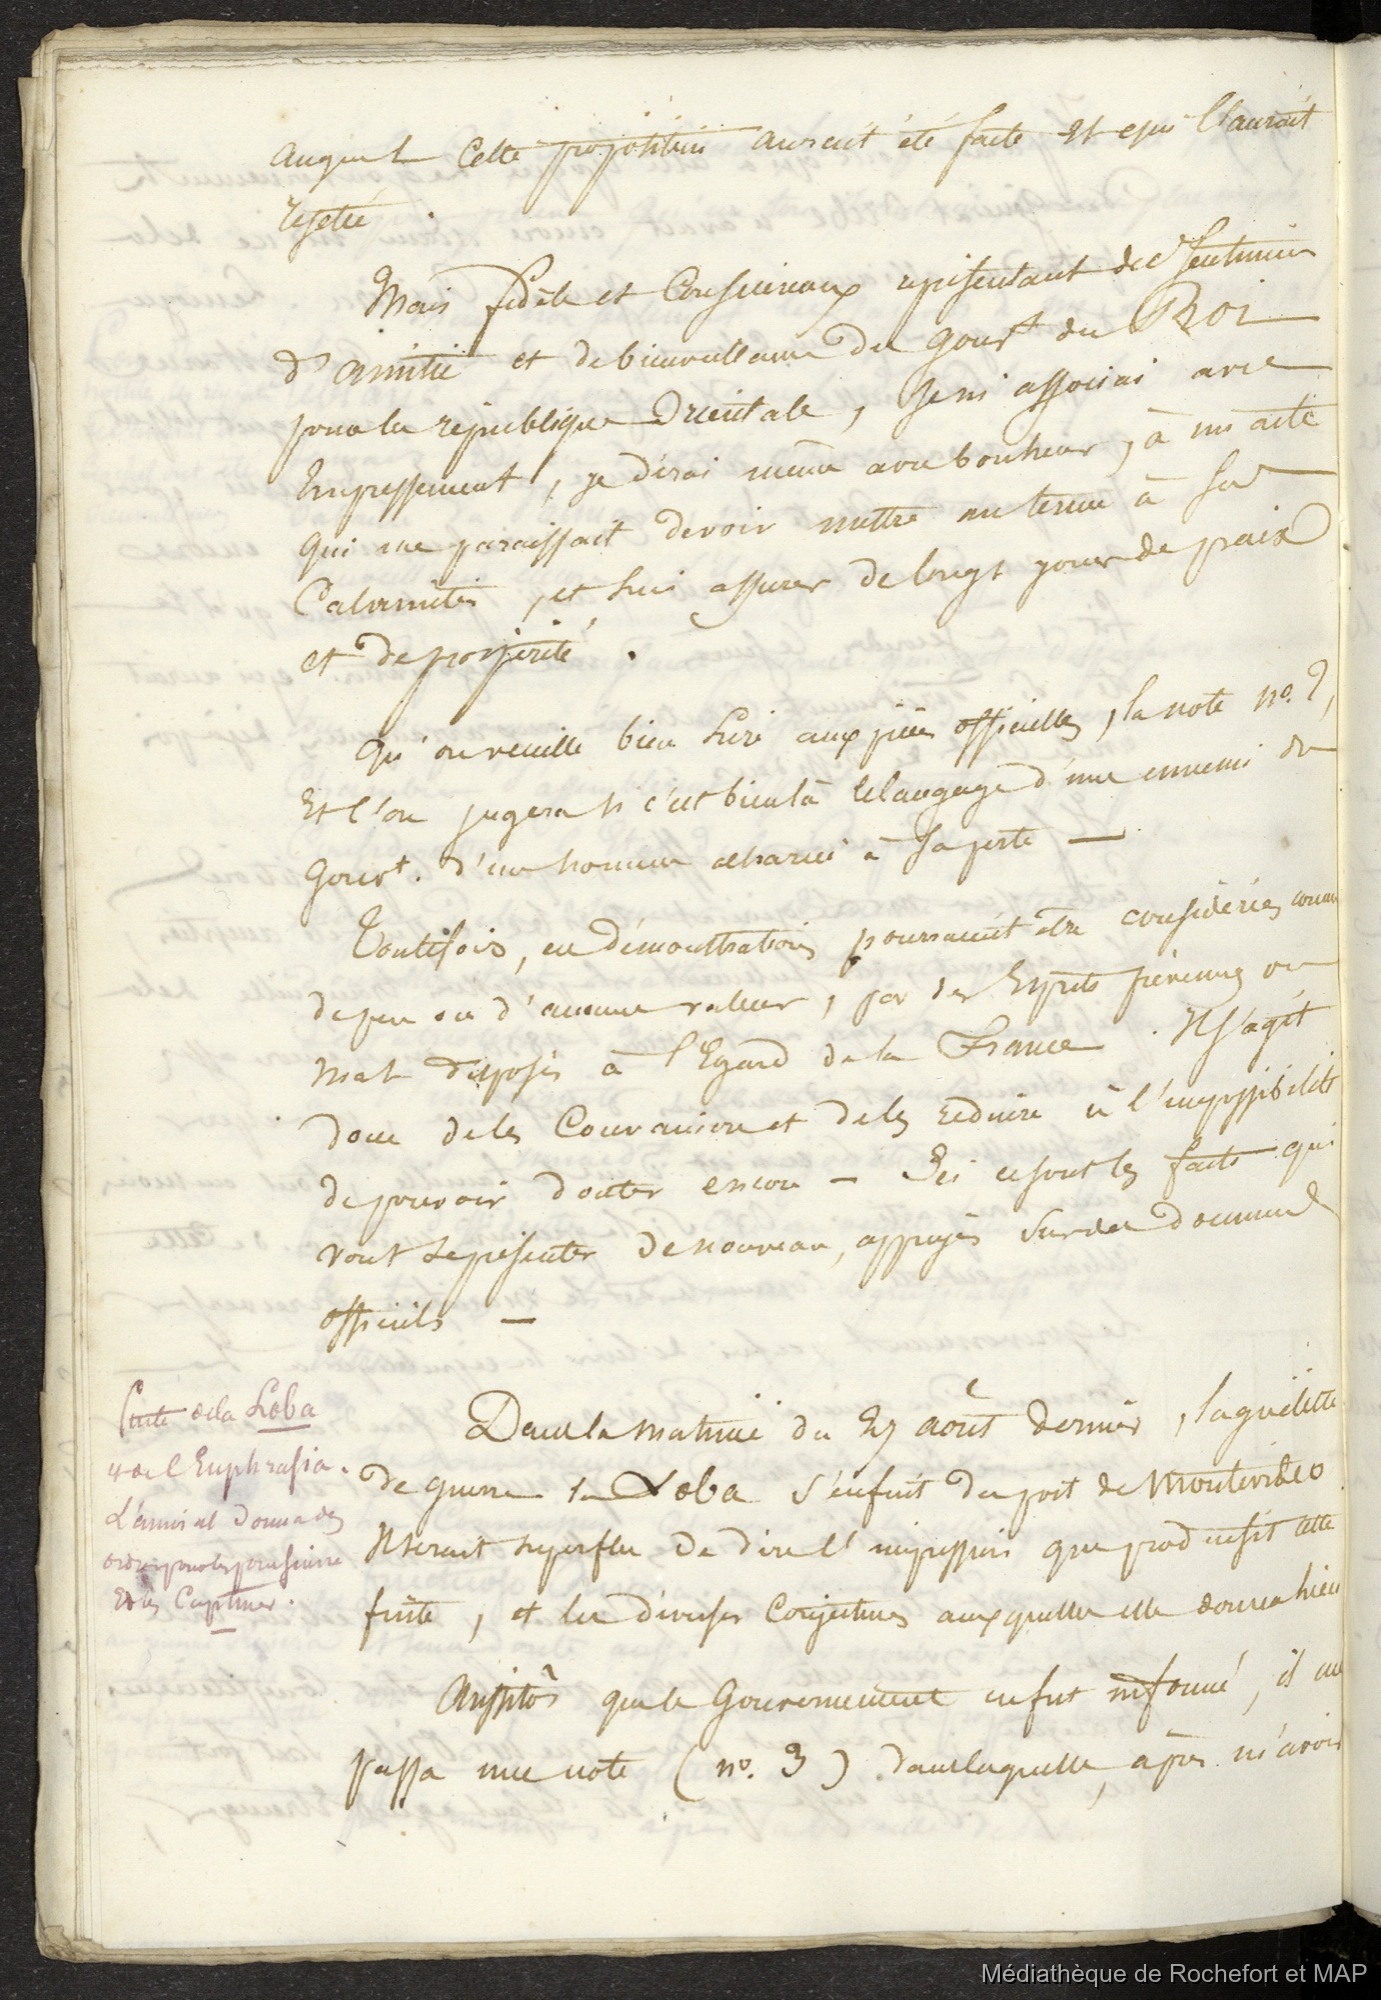 auquel cette proposition aurait été faite et qui l'aurait
rejetée.
Mais fidèle et consciencieux représentant des sentimens
d'amitié et de bienveillance du gouvt du Roi
pour la république Orientale, je m'associai avec
Empressement, je dirai même avec bonheur, à un acte
qui me paraissait devoir mettre un terme à ses
Calamités, et lui assurer de longs jours de paix
et de prospérité.
Qu'on veuille bien lire aux pièces officielles, la note no. 2,
Et l'on jugera si c'est bien là le langage d'un ennemi du
Gouvt. d'un homme acharné à sa perte —
Toutefois, ces démonstrations pourraient être considérées comme
de peu ou d'aucune valeur, par des Esprits prévenus ou
mal disposés à l'Egard de la France. Il s'agit
donc de les Convaincre et de les réduire à l'impossibilité
de pouvoir douter encore — Ici ce sont les faits qui
vont se présenter de nouveau, appuyés sur des documens
officiels —
fuite de la Loba
et de l'Euphrasia.
L'amiral donna des
ordres pour les poursuivre
Et les Capturer.
Dans la matinée du 27 août dernier, la goëlette
de guerre la Loba s'enfuit du port de Montevideo
Il serait superflu de dire l'impression que produisit cette
fuite, et les diverses Conjectures auxquelles elle donna lieu
Aussitôt que le Gouvernement en fut informé, il me
passa une note (no. 3) dans laquelle, après m'avoir
Médiathèque de Rochefort et MAP